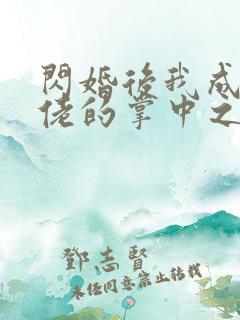 閃婚後我成
佬的掌中之
鄧志賢
未任同意禁止轉載